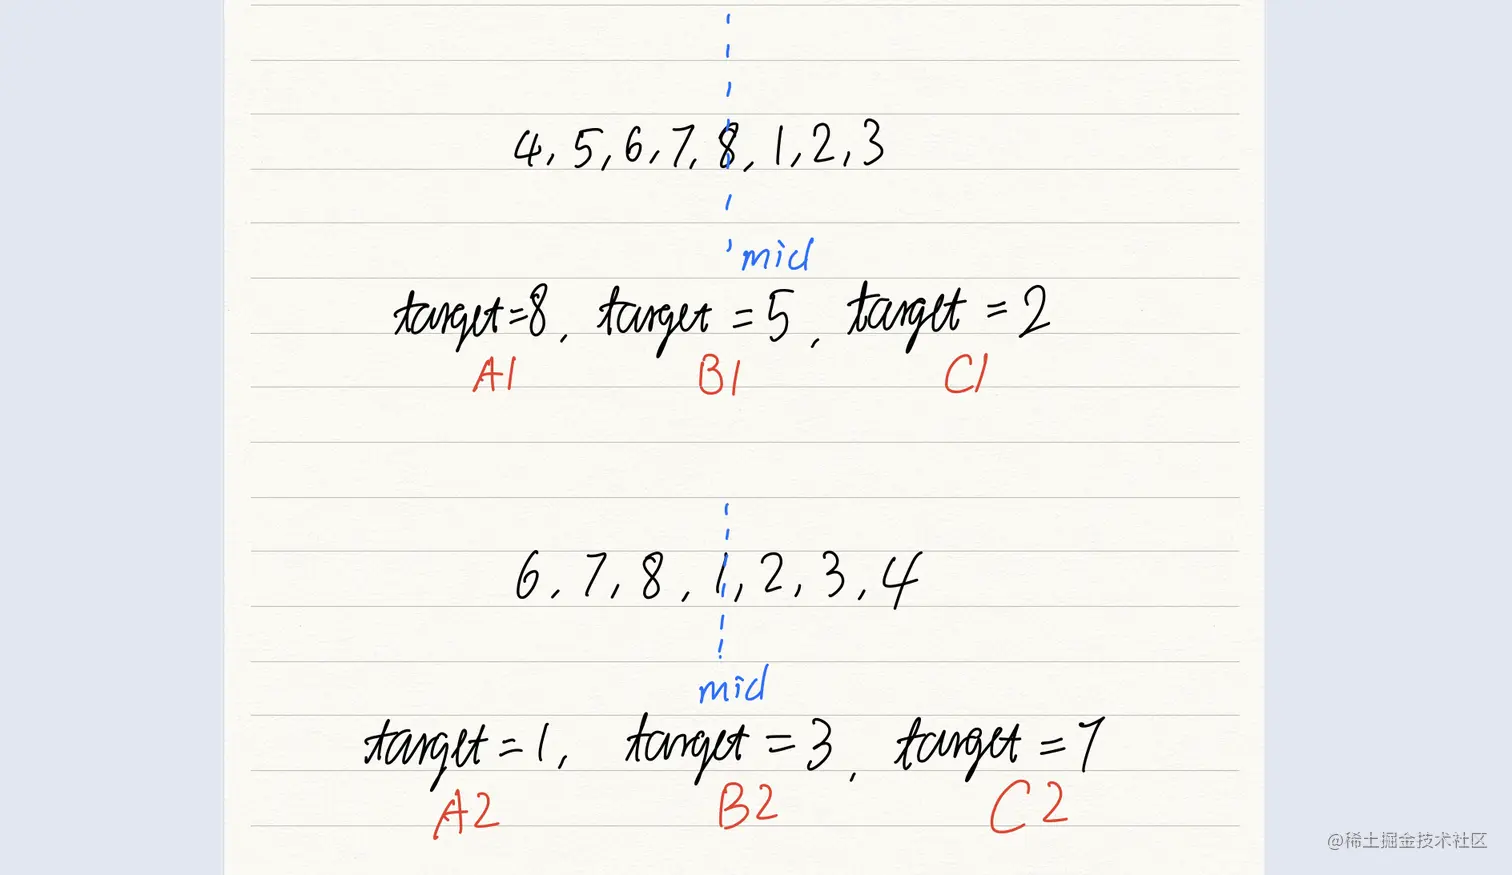 4, 5, 6, 7, 8, 1, 2, 3
mid
target=8, target=5, target=2
A1 B1 C1
6, 7, 8, 1, 2, 3, 4
mid
target=1, target=3, target=7
A2 B2 C2
@稀土掘金技术社区